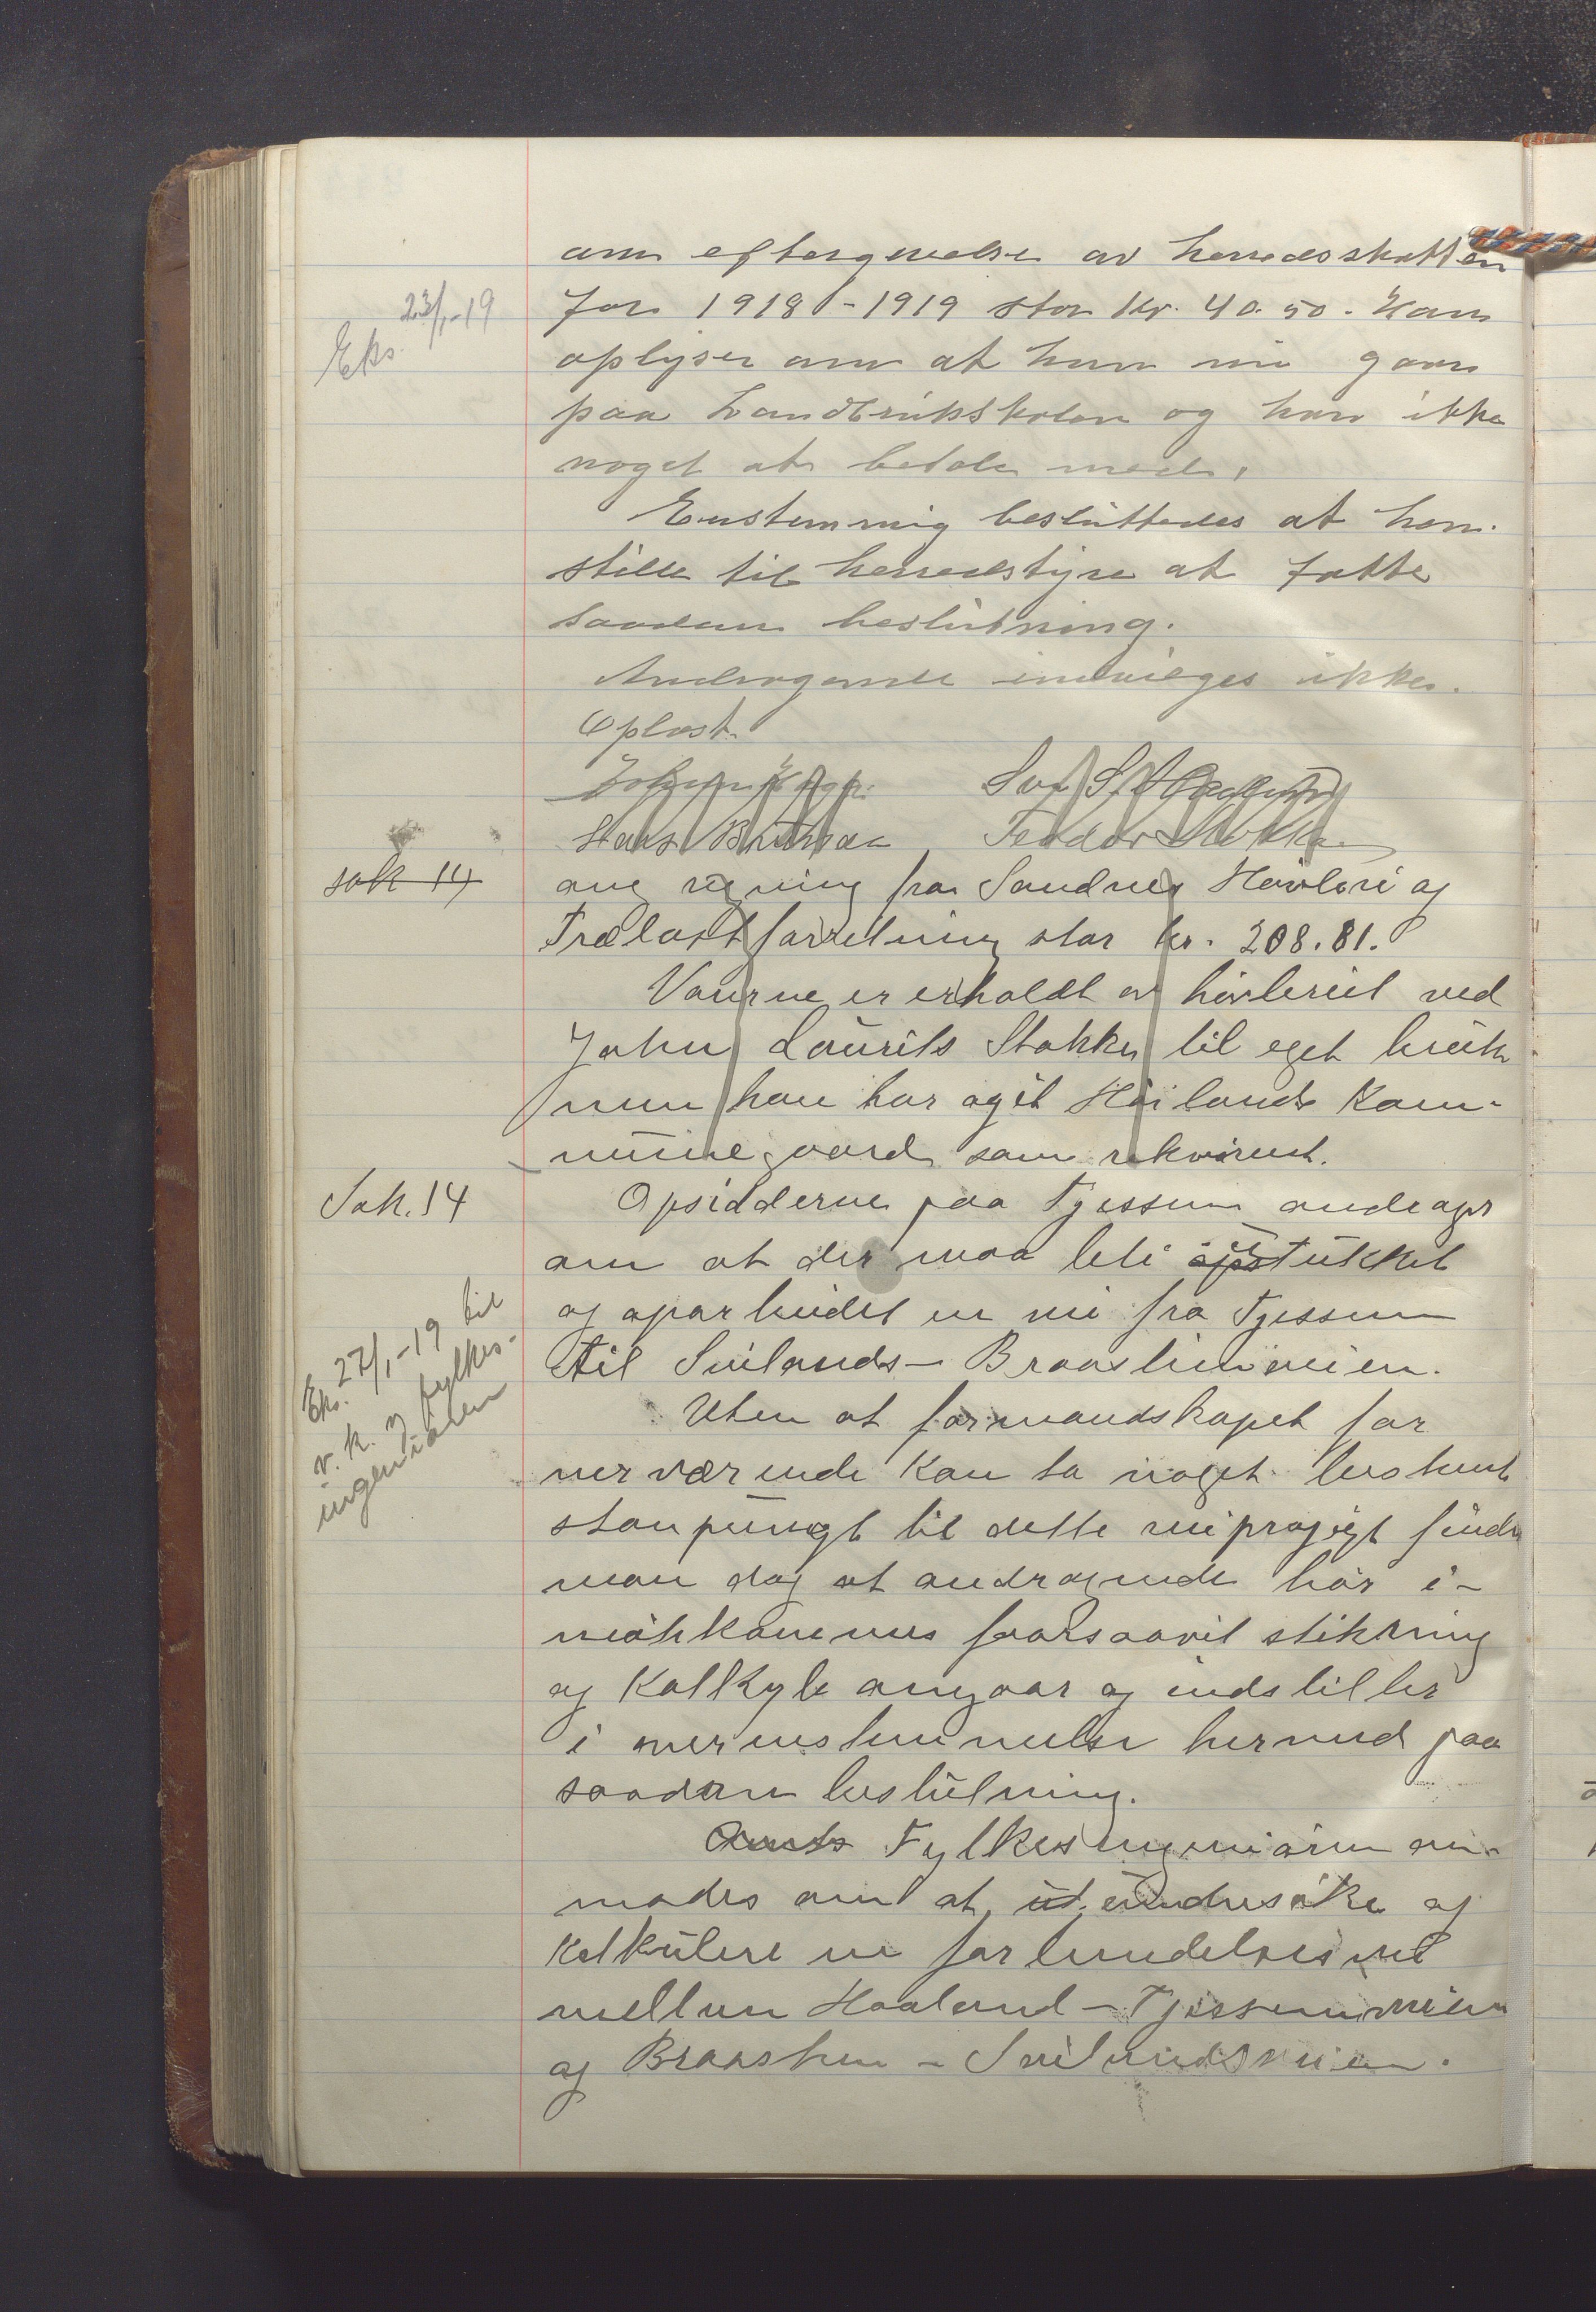 om eftergivelse av herredsskatten
for 1918-1919 stor Kr. 40.50. Han
23/1-19
Eks.
oplyser om at han nu gaar
paa Landbrukskolen og har ikke
noget at betale med.
Enstemmig besluttedes at hen-
stille til herredstyre at fatte
saadan beslutning.
Andragende indvilges ikke.
Oplæst.
Hans Bruhaan Teodor Stokka
sak 14
ang regning fra Sandnes Høvleri og
Trælastforretning stor kr. 208.81.
Varene er erholdt av høvleriet ved
John Laurits Stokka til eget bruk
men han har ogit Høilands Kom-
munegaard som rekvirent.
Sak. 14
Opsidderne paa Tjessem andrager
om at der maa bli opstukket
og oparbeidet en vei fra Tjessem
til Sviland-Braasteinveien.
Eks. 27/1-19 til
v. k. og fylkes-
ingeniøren
Uten at formandskapet for
nerværende kan ta noget bestemt
stanpungt til dette veiprojegt finder
man dog at andragende bør i-
møtekommes forsaavit stikning
og Kalkyle angaar og indstiller
i overenstemmelse hermed paa
saadan beslutning.
Amts Fylkesingeniøren an-
modes om at ut undersøke og
Kalkulere en forbindelsesvei
mellem Haaland-Tjessemveien
og Braasten-Svilandsveien.